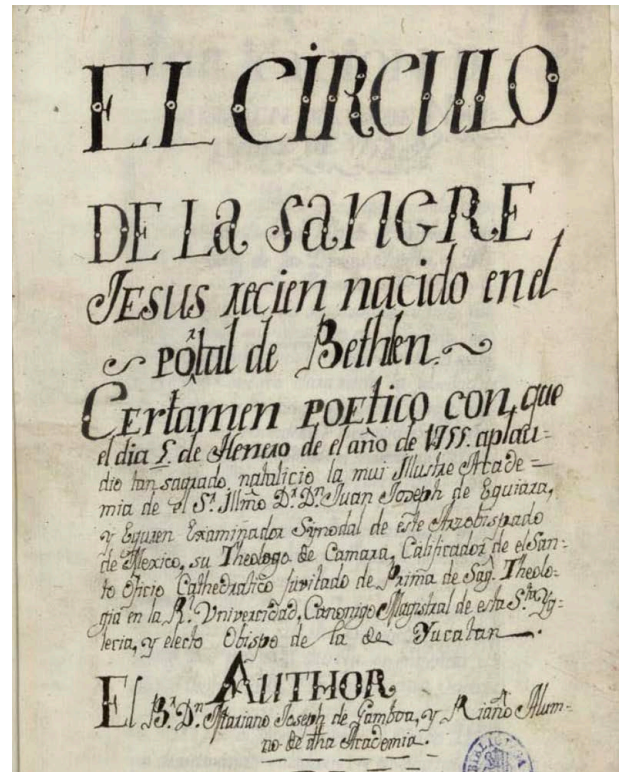 EL CÍRCULO
DE La SaNGRE
JESUS recien nacido en el
~ põtal de Bethlen. ~
CERtamen POETICO con, que
el dia 5. de Henero de el año de 1755. aplau-
dio tan sagrado, natalicio la mui Illustre Acade=
mia de el Sr. Illmo Dr. Dn. Juan Joseph de Eguiara,
y Eguren Examinador Synodal de este Arzobispado
de Mexico, su Theologo de Camara, Calificador de el San-
to Oficio Cathedratico Juvilado de Prima de Sag. Theolo-
gia en la Rl. Vniversidad, Canonigo Magistral de esta Sta. Yg-
lecia, y electo Obispo de la de Yucatan.
AUTHOR
El Br. Dn. Mariano Joseph de Gamboa, y Riaño Alum-
no de dha Academia.
BIBLIOTECA